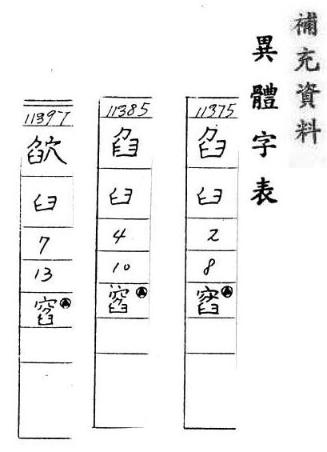 補充資料
異體字表
11375
臽
臼
2
8
窞
11385
臼
4
10
窞
11397
臼
7
13
窞